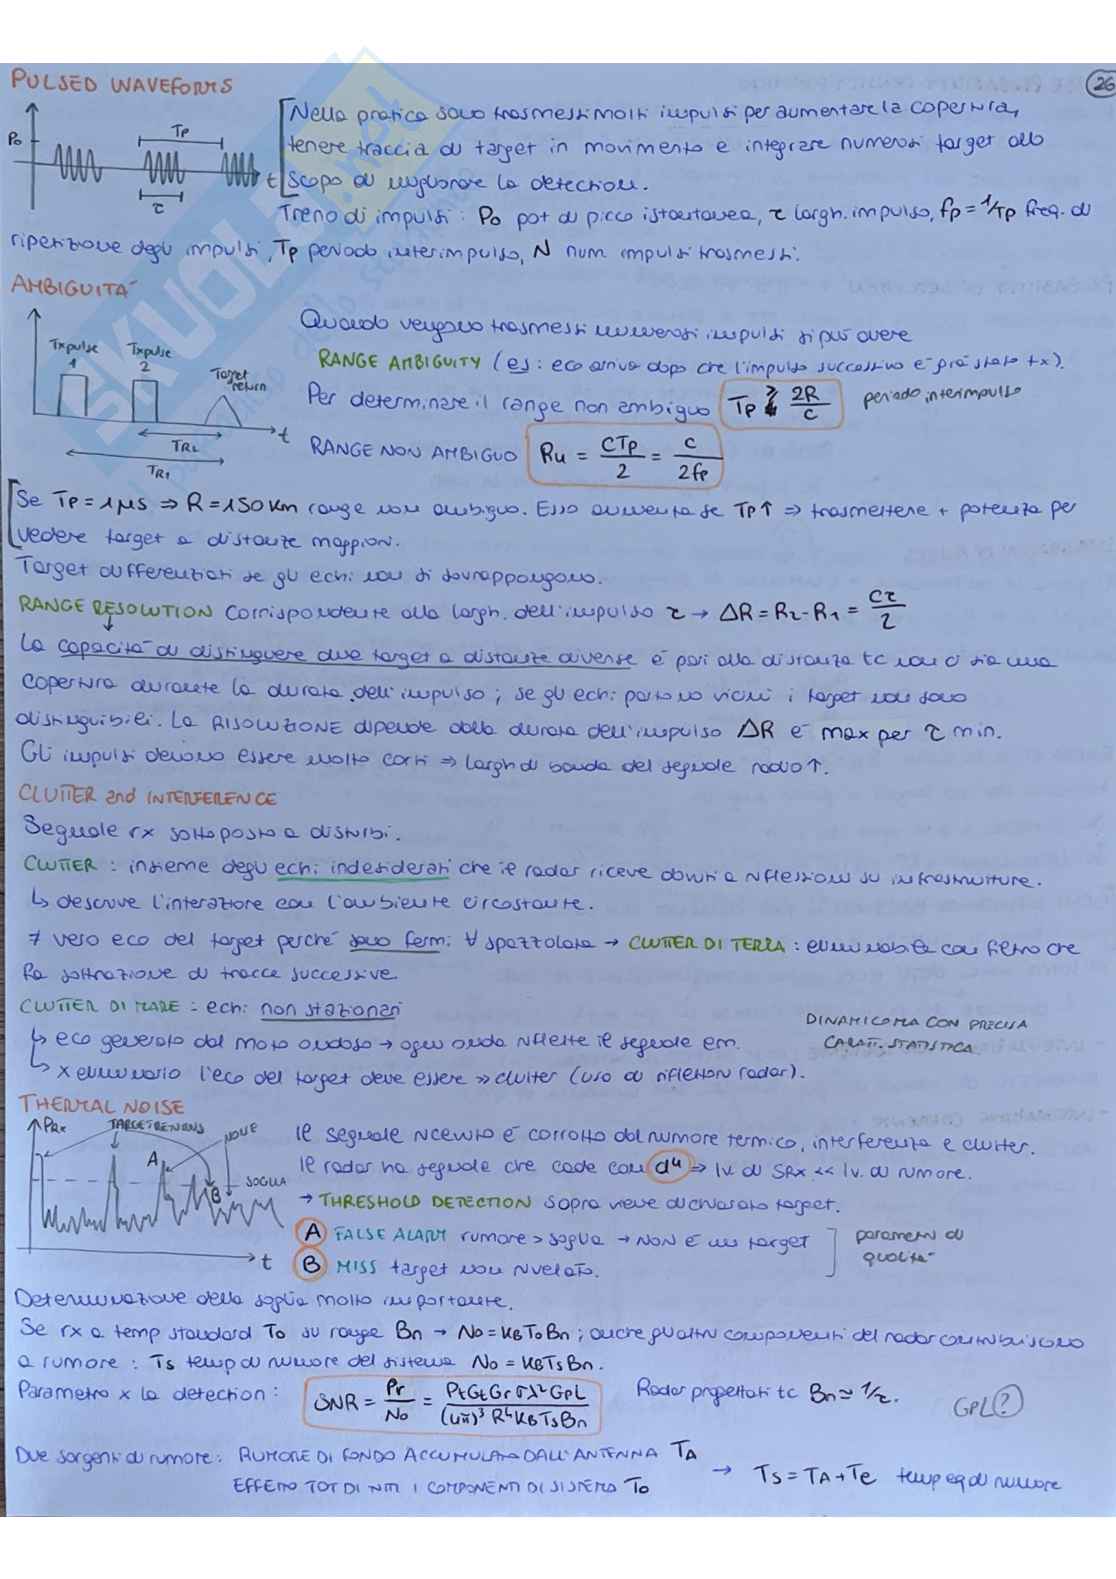 PULSED WAVEFORMS
26
P0
Tp
τ
t
Nella pratica sono trasmessi molti impulsi per aumentare la copertura,
tenere traccia di target in movimento e integrare numerosi target allo
scopo di migliorare la detection.
Treno di impulsi: P0 pot di picco istantanea, τ largh. impulso, fp = 1/Tp freq. di
ripetizione degli impulsi, Tp periodo interimpulso, N num impulsi trasmessi.
AMBIGUITÀ
Tx pulse 1
Tx pulse 2
Target return
t
TR2
TR1
Quando vengono trasmessi numerosi impulsi si può avere
RANGE AMBIGUITY (es: eco arriva dopo che l'impulso successivo è già stato tx).
Per determinare il range non ambiguo Tp ≥ 2R/c periodo interimpulso
RANGE NON AMBIGUO Ru = cTp/2 = c/2fp
Se Tp = 1μs ⇒ R = 150 km range non ambiguo. Esso aumenta se Tp↑ ⇒ trasmettere + potenza per
vedere target a distanze maggiori.
Target differenziati se gli echi non si sovrappongono.
RANGE RESOLUTION corrispondente alla largh. dell'impulso τ → ΔR = R2-R1 = cτ/2
La capacità di distinguere due target a distanze diverse è pari alla distanza tc non ci sia una
copertura durante la durata dell'impulso; se gli echi partono vicini i target non sono
distinguibili. La RISOLUZIONE dipende dalla durata dell'impulso ΔR è max per τ min.
Gli impulsi devono essere molto corti ⇒ largh di banda del segnale radio↑.
CLUTTER and INTERFERENCE
Segnale rx sottoposto a disturbi.
CLUTTER: insieme degli echi indesiderati che il radar riceve dovuti a riflessioni su infrastrutture.
↳ descrive l'interazione con l'ambiente circostante.
≠ vero eco del target perché sono fermi ∀ spazzolata → CLUTTER DI TERRA: eliminabile con filtro che
fa sottrazione di tracce successive
CLUTTER DI MARE: echi non stazionari
↳ eco generato dal moto ondoso → ogni onda riflette il segnale em.
DINAMICO MA CON PRECISA
CARATT. STATISTICA
↳ x eliminarlo l'eco del target deve essere >> clutter (uso di riflettori radar).
THERMAL NOISE
PRx
TARGET RETURNS
NOISE
A
B
SOGLIA
t
Il segnale ricevuto è corrotto dal rumore termico, interferenza e clutter.
Il radar ha segnale che cade con d⁴ ⇒ lv. di SRx << lv. di rumore.
→ THRESHOLD DETECTION sopra viene dichiarato target.
A FALSE ALARM rumore > soglia → NON È un target
B MISS target non rivelato.
parametri di
qualità
Determinazione della soglia molto importante.
Se rx a temp standard T0 su range Bn → N0 = KBT0Bn; anche gli altri componenti del radar contribuiscono
a rumore: Ts temp di rumore del sistema N0 = KBTsBn.
Parametro x la detection: SNR = Pr/N0 = PtGtGrσλ²GpL/(4π)³R⁴KBTsBn Radar progettati tc Bn ≃ 1/τ.
GpL ?
Due sorgenti di rumore: RUMORE DI FONDO ACCUMULATO DALL'ANTENNA TA
EFFETTO TOT DI TUTTI I COMPONENTI DI SISTEMA T0
→ Ts = TA + Te temp eq di rumore